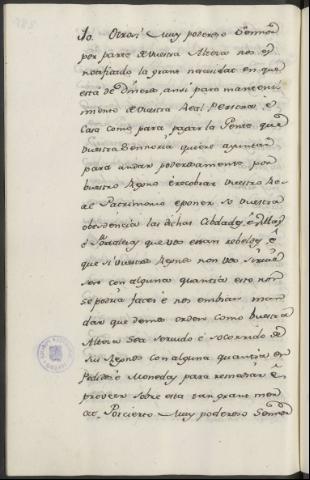 10. Otrosi Muy poderoso Sennor
por parte de Vuestra Alteza nos es
notificado la grant necesidat en que
esta de Dineros, ansi para mantenimi-
miento de Vuestra Real Persona, é
Casa como para pagar la Gente que
Vuestra Sennoria quiere ayuntar
para andar poderosamente por
vuestro Regno é recobrar Vuestro Re-
al Patrimonio e poner so vuestra
obediencia las dichas Cibdades, é Villas
é Fortalezas que vos estan rebeldes, é
que si Vuestros Regnos non vos sirvie-
sen con alguna quantia esto non
se podria facer é nos embiar man-
dar que demos orden como Vuestra
Alteza sea servido é socorrido de
sus Regnos con alguna quantia en
Pedido é Monedas para remediar é
proveer sobre esta tan grant nece-
sidat. Por cierto Muy poderoso Sennor